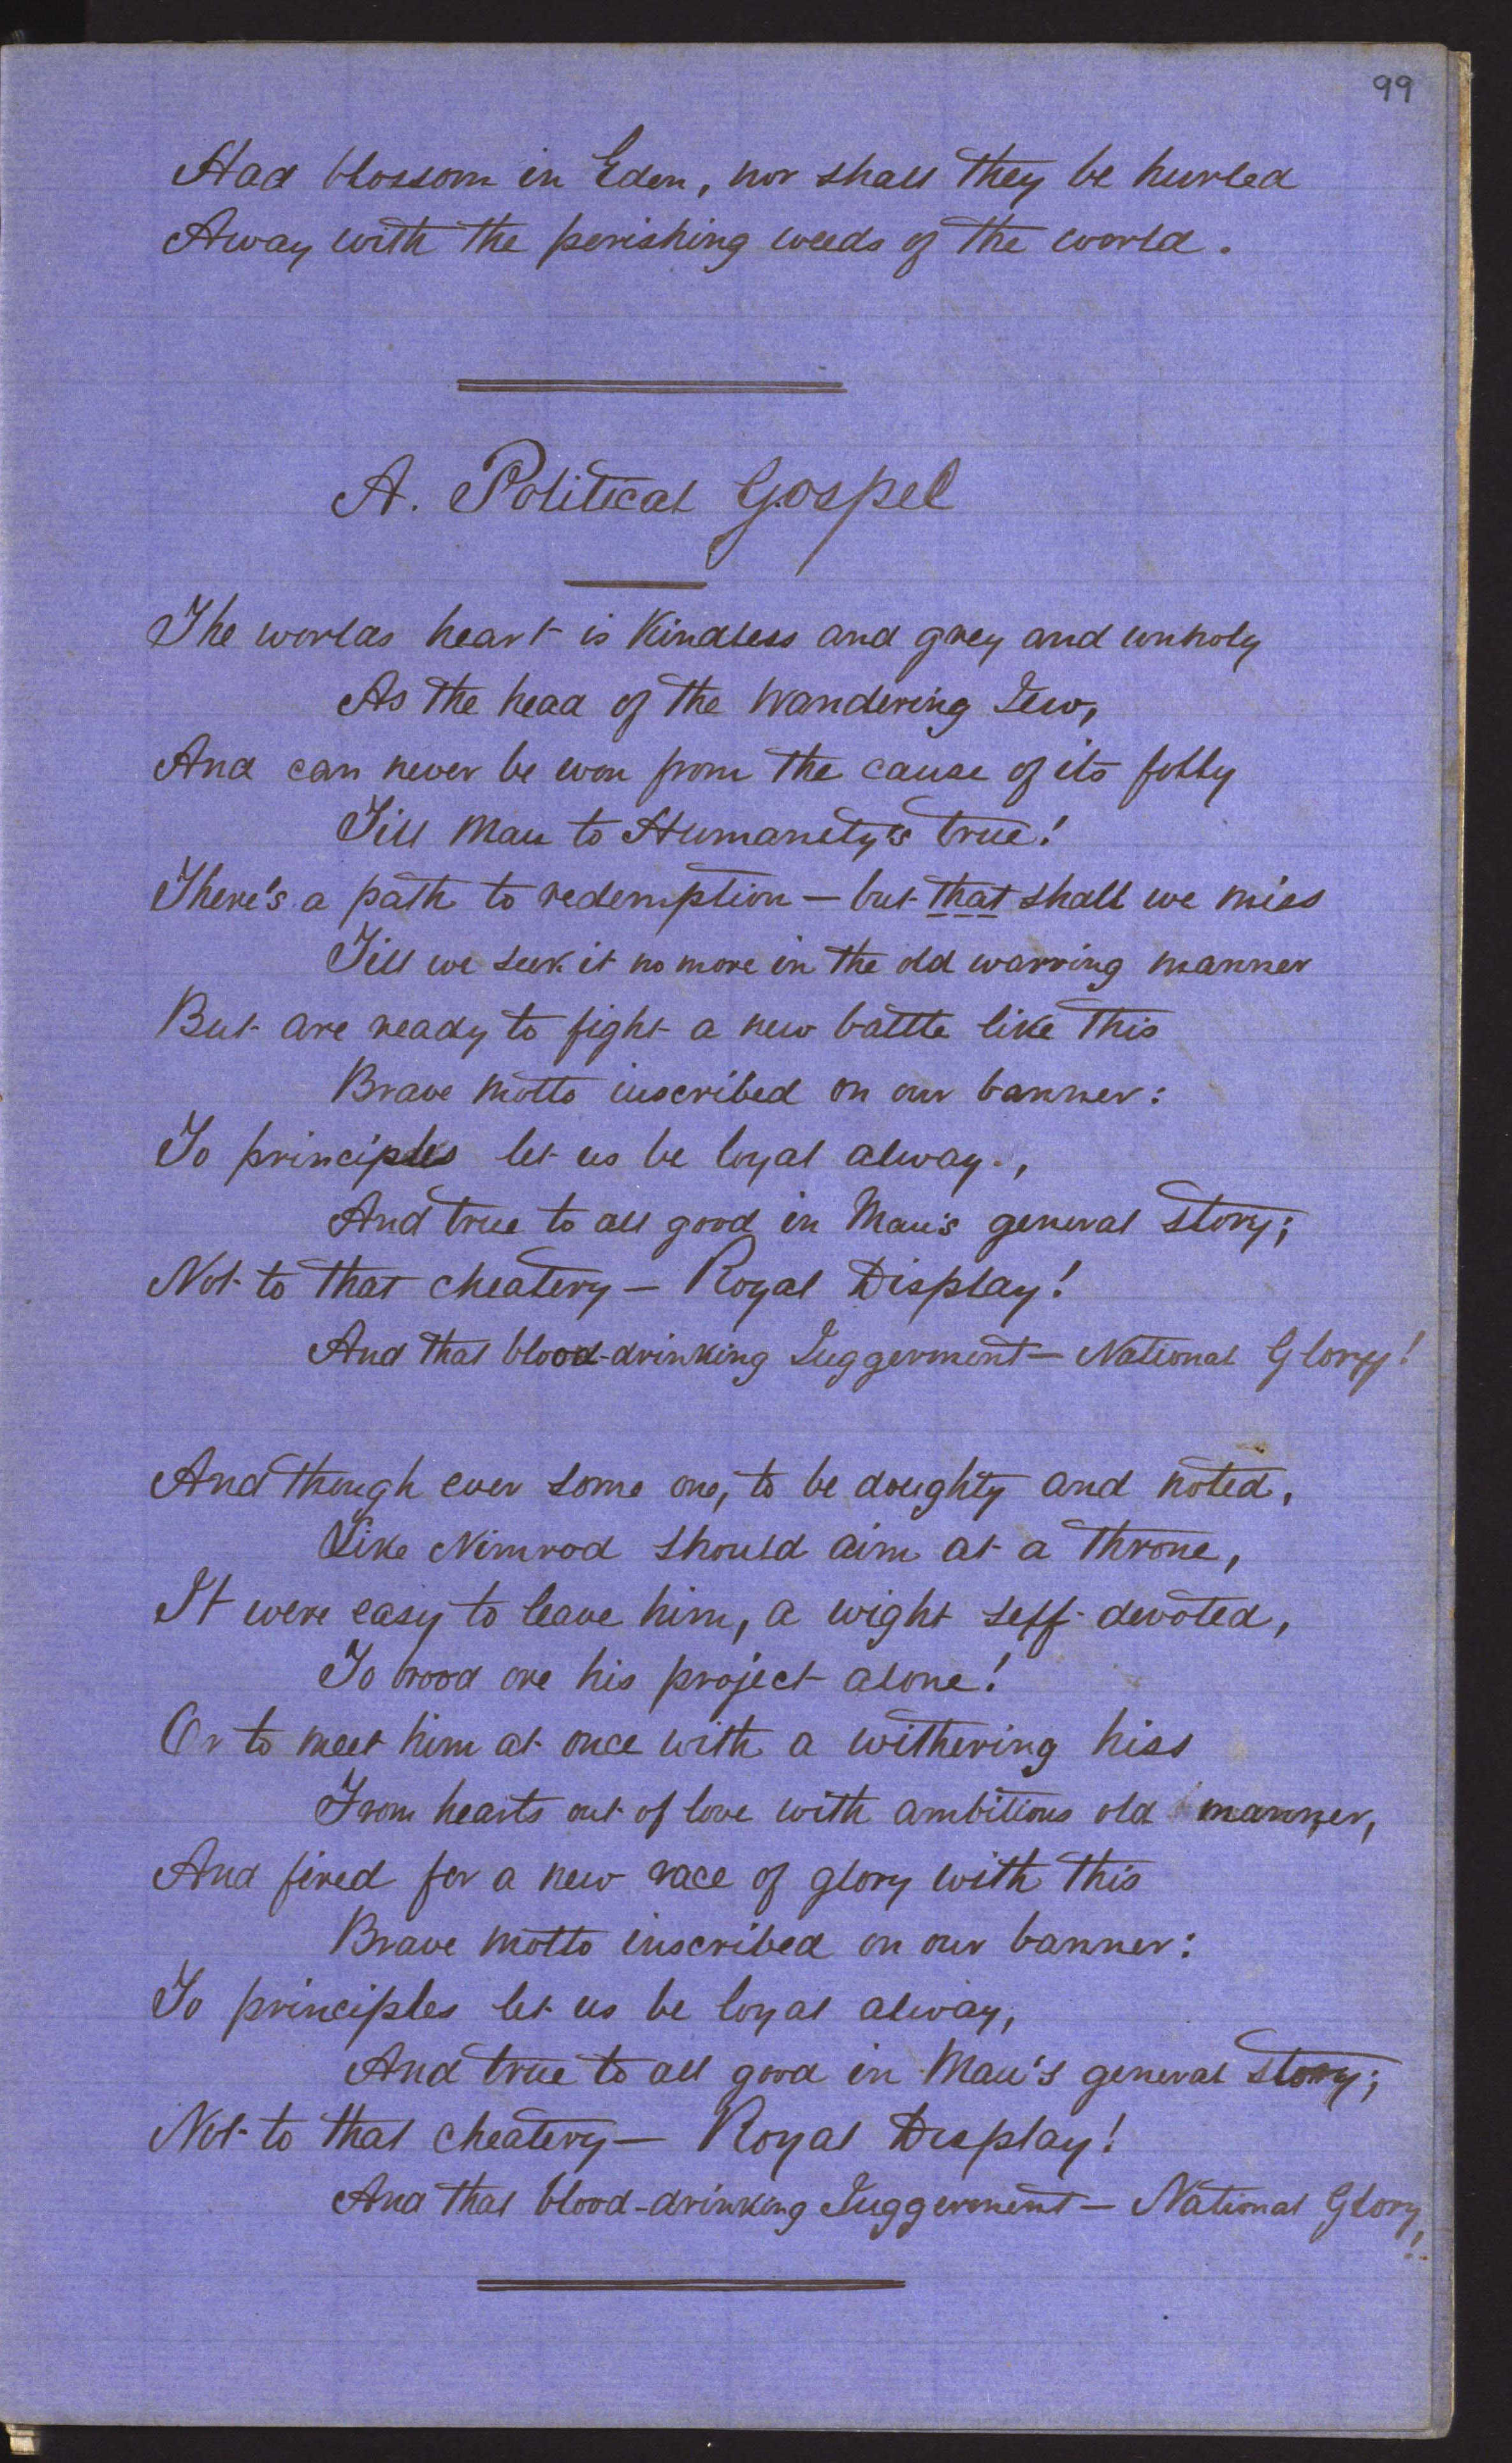 99
Had blossom in Eden, nor shall they be hurled
Away with the perishing weeds of the world.
A. Political Gospel
The worlds heart is Kindless and grey and unholy
As the head of the Wandering Jew,
And can never be won from the cause of its folly
Till Man to Humanity's true!
There's a path to redemption — but that shall we miss
Till we seek it no more in the old warring manner
But are ready to fight a new battle like this
Brave motto inscribed on our banner:
To principles let us be loyal alway.,
And true to all good in Man's general story;
Not to that cheatery — Royal Display!
And that blood-drinking Juggerment — National Glory!
And though ever some one, to be doughty and noted,
Like Nimrod should aim at a throne,
It were easy to leave him, a wight self-devoted,
To brood ore his project alone!
Or to meet him at once with a withering hiss
From hearts out of love with ambitions old manner,
And fired for a new race of glory with this
Brave motto inscribed on our banner:
To principles let us be loyal alway,
And true to all good in Man's general story;
Not to that cheatery — Royal Display!
And that blood-drinking Juggerment — National Glory!